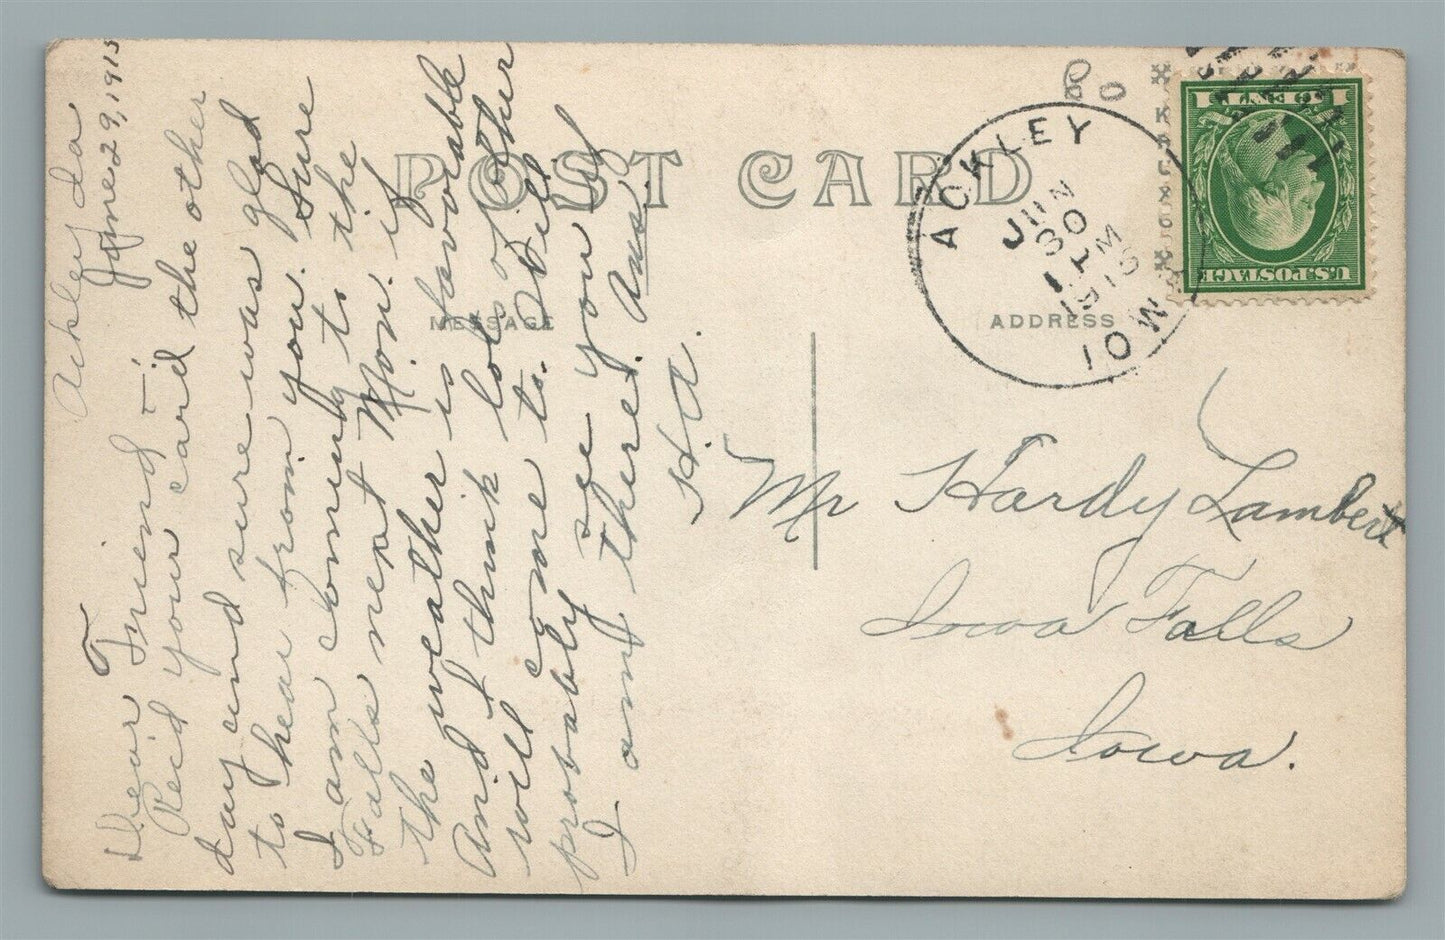 Ackley Ia
June 29, 1915
Dear Friend:-
Rec'd your card the other
day and sure was glad
to hear from you. Sure
I am coming to the
Falls next Mon. if
the weather is favorable
And I think lots of other
will come to. Will
probably see you if
I am there. Ans.
H.A.
POST CARD
MESSAGE
ADDRESS
ACKLEY
JUN
30
1 PM
1915
IOWA
U.S. POSTAGE
1 CENT 1
Mr Hardy Lambert
Iowa Falls
Iowa.